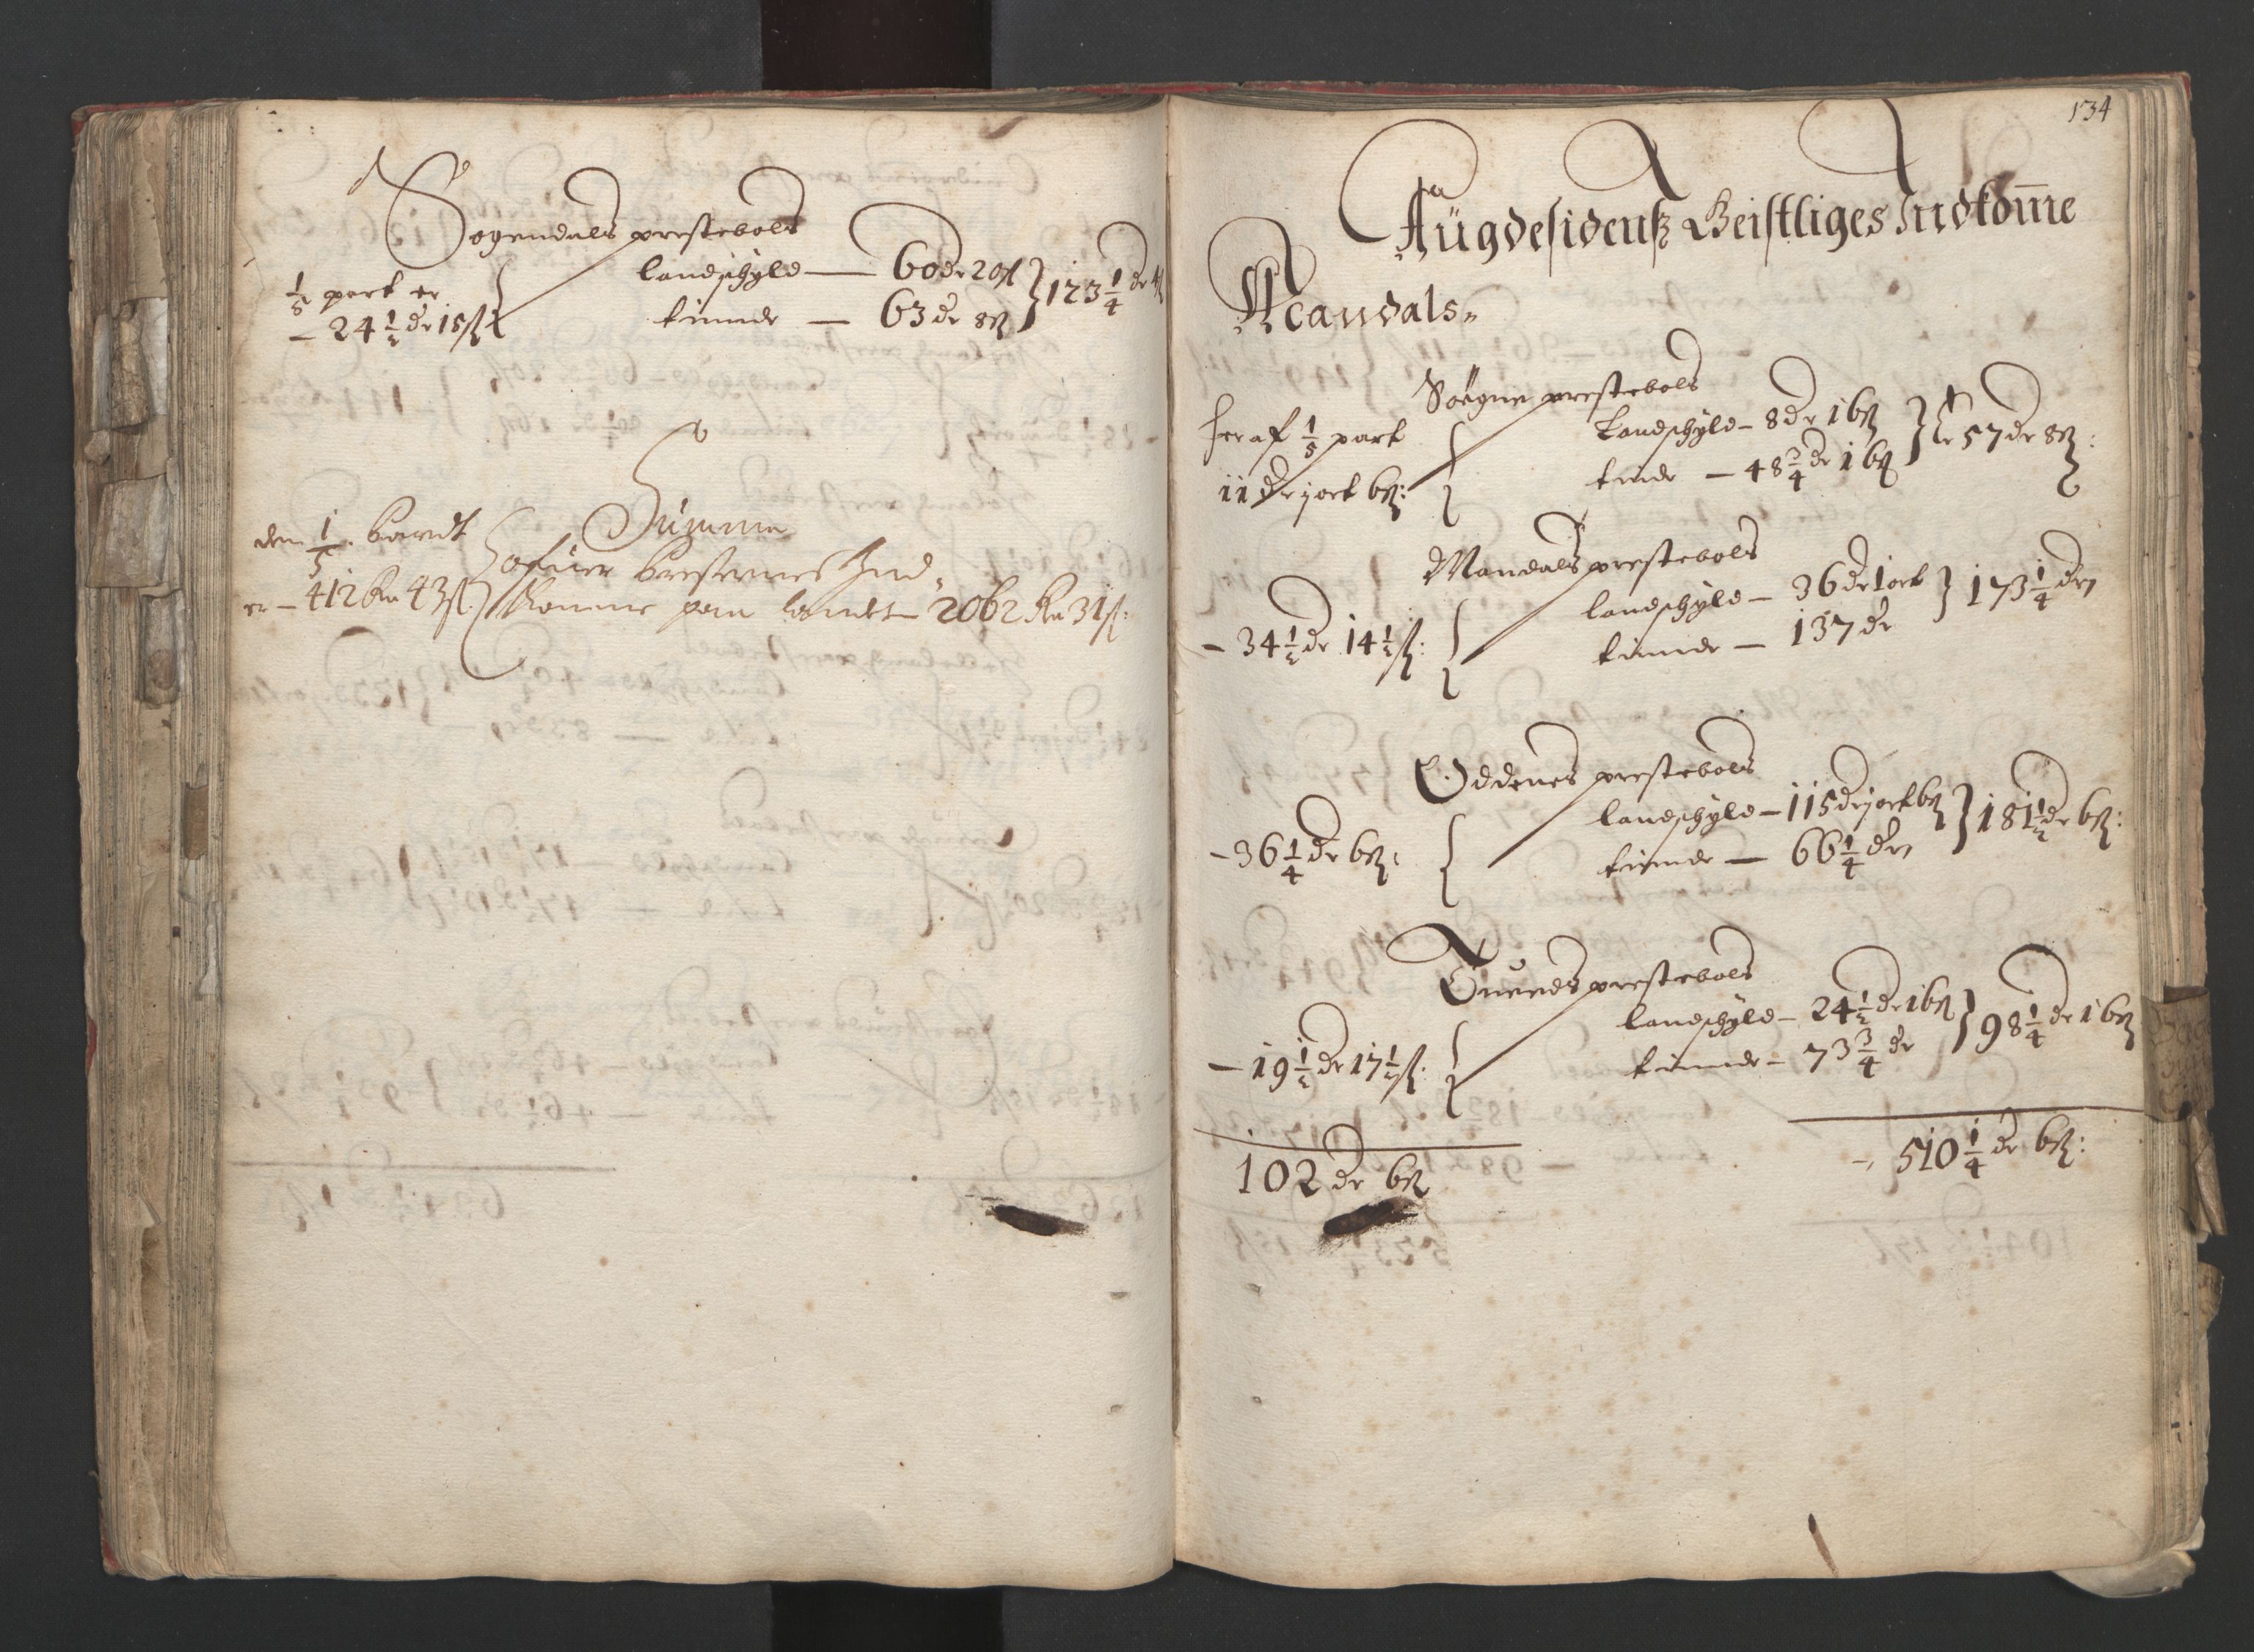 Sogendals prestebols
1/5 part er
– 24 1/2 dr 15 ß
landschyld — 60 dr 20 ß
tiende — 63 dr 8 ß
123 1/4 dr 4 ß
Summa
den 1/5 . Partt
er – 412 Rdr 43 ß
ofuer Presternes Ind-
komme paa landet – 2062 Rdr 31 ß:
134
Augdesidens Geistliges Indkom̄e
Mandals
Søegne prestebols
her af 1/5 part
11 dr j ort 6 ß:
Landschyld – 8 dr 16 ß
tiende – 48 3/4 dr 16 ß
Er 57 dr 8 ß:
Mandals prestebols
– 34 1/2 dr 14 1/2 ß:
landschyld – 36 dr 1 ort
tiende – 137 dr
173 1/4 dr
Oddenes prestebols
– 36 1/4 dr 6 ß:
landschyld – 115 dr j ort 6 ß
tiende — 66 1/4 dr
181 1/2 dr 6 ß:
Quenes prestebols
– 19 1/2 dr 17 1/2 ß:
landschyld – 24 1/2 dr 16 ß
tiende – 73 3/4 dr
98 1/4 dr 16 ß
102 dr 6 ß
– 510 1/4 dr 6 ß: